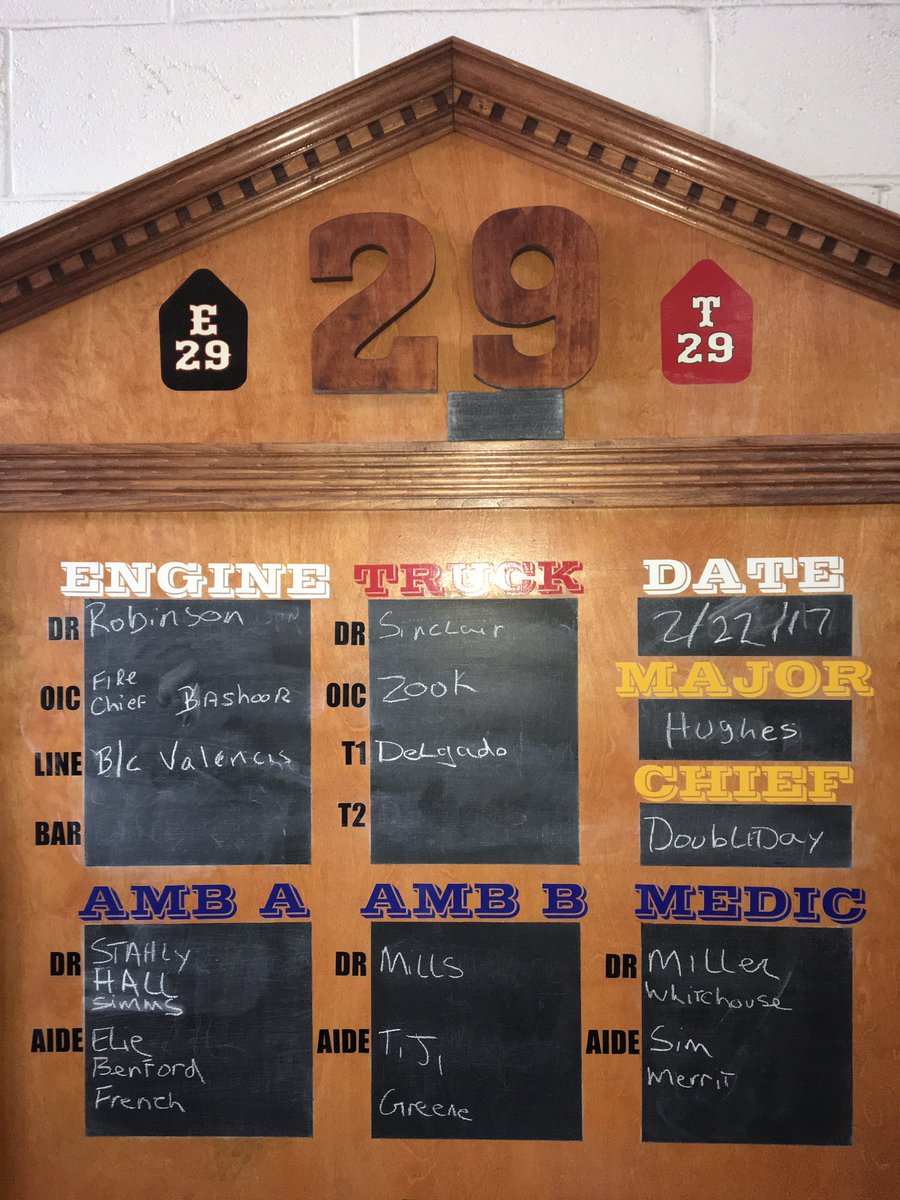 29
E
29
T
29
ENGINE
DR Robinson
OIC Fire
Chief Bashoor
LINE B/C Valencis
BAR
TRUCK
DR Sinclair
OIC Zook
T1 Delgado
T2
DATE
2/22/17
MAJOR
Hughes
CHIEF
DoubleDay
AMB A
DR STAHLY
HALL
Simms
AIDE Elie
Benford
French
AMB B
DR Mills
AIDE T.J.
Greene
MEDIC
DR Miller
Whitehouse
AIDE Sim
Merrit